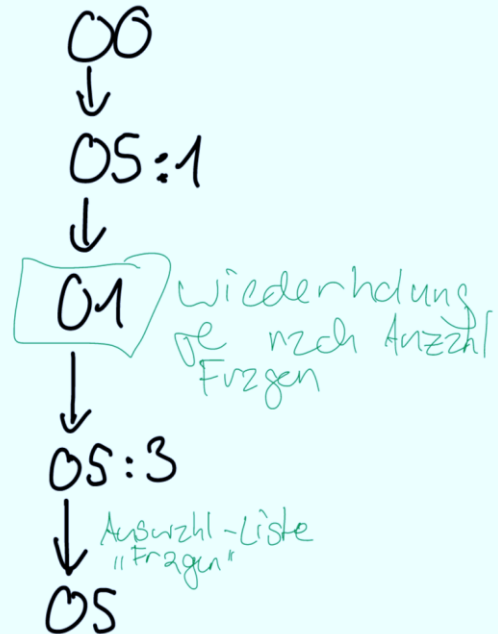 00
05:1
01
Wiederholung
je nach Anzahl
Fragen
05:3
Auswahl-Liste
"Fragen"
05